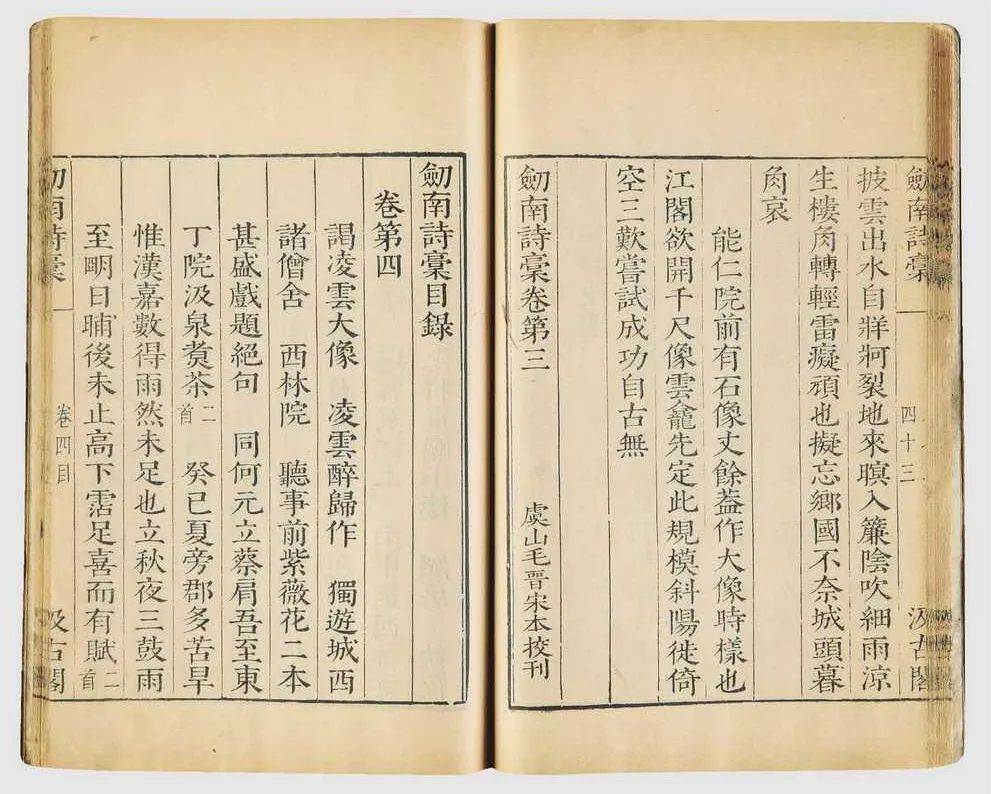 劒南詩稾
四十三
汲古閣
披雲出水自牂牁裂地來瞑入簾陰吹細雨涼
生樓角轉輕雷癡頑也擬忘鄉國不奈城頭暮
角哀
能仁院前有石像丈餘葢作大像時樣也
江閣欲開千尺像雲龕先定此規模斜陽徙倚
空三歎嘗試成功自古無
劒南詩稾卷第三
虞山毛晉宋本挍刊
劒南詩稾目録
卷第四
謁凌雲大像 凌雲醉歸作 獨遊城西
諸僧舍 西林院 聽事前紫薇花二本
甚盛戲題絕句 同何元立蔡肩吾至東
丁院汲泉煑茶二首 癸巳夏旁郡多苦旱
惟漢嘉數得雨然未足也立秋夜三鼓雨
至明日晡後未止高下霑足喜而有賦二首
劒南詩稾
卷四目
汲古閣